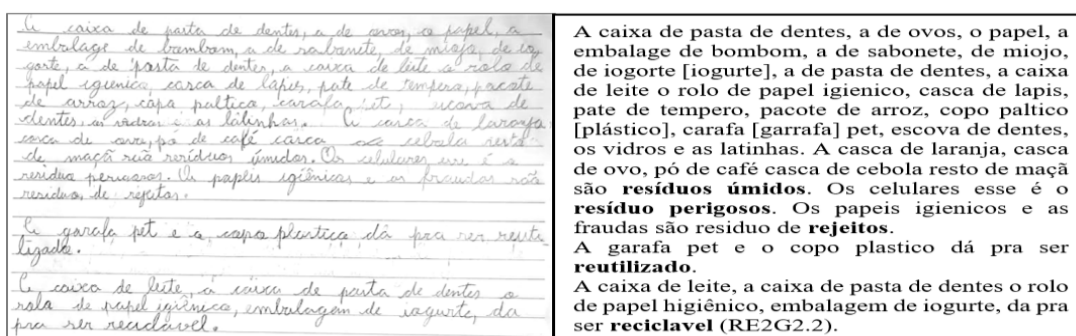 A caixa de pasta de dentes, a de ovos, o papel, a
embalage de bombom, a de sabonete, de miojo, de io
gorte, a de pasta de dentes, a caixa de leite o rolo de
papel igienico, casca de lápis, pate de tempero, pacote
de arroz, copo paltico, carafa pet, escova de
dentes, os vidros e as latinhas. A casca de laranja
casca de ovo, pó de café casca de cebola resto
de maçã são resíduos úmidos. Os celulares esse é o
residuo perigosos. Os papeis igiênicos e as fraudas são
residuos de rejeitos.
A garafa pet e o copo plastico dá pra ser reuti
lizado.
A caixa de leite, a caixa de pasta de dentes o
rolo de papel igiênico, embalagem de iogurte, da
pra ser reciclável.
A caixa de pasta de dentes, a de ovos, o papel, a
embalage de bombom, a de sabonete, de miojo,
de iogorte [iogurte], a de pasta de dentes, a caixa
de leite o rolo de papel igienico, casca de lapis,
pate de tempero, pacote de arroz, copo paltico
[plástico], carafa [garrafa] pet, escova de dentes,
os vidros e as latinhas. A casca de laranja, casca
de ovo, pó de café casca de cebola resto de maçã
são resíduos úmidos. Os celulares esse é o
resíduo perigosos. Os papeis igienicos e as
fraudas são residuo de rejeitos.
A garafa pet e o copo plastico dá pra ser
reutilizado.
A caixa de leite, a caixa de pasta de dentes o rolo
de papel higiênico, embalagem de iogurte, da pra
ser reciclavel (RE2G2.2).